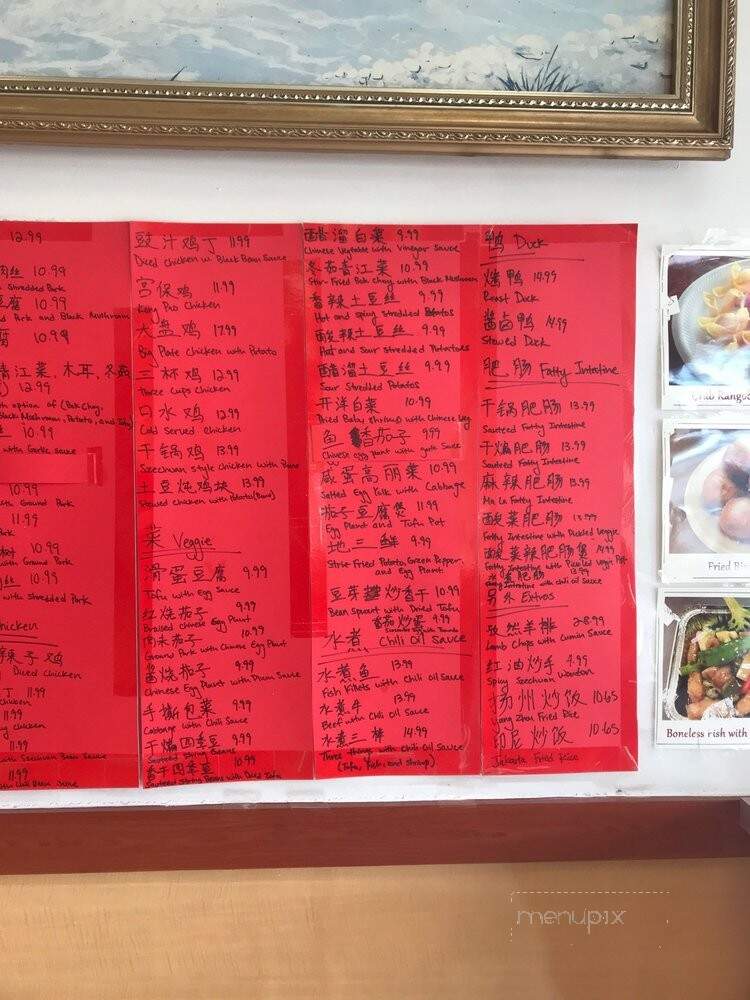 12.99
肉丝 10.99
Shredded Pork
豆腐 10.99
Pork and Black Mushroom
腐 10.99
青江菜, 木耳, 冬菇
12.99
with option of (Bok Choy,
Black Mushroom, Potato, and Tofu)
丝 10.99
with Garlic sauce
10.99
with Ground Pork
11.99
10.99
with Ground Pork
丝 10.99
with shredded Pork
Chicken
辣子鸡
Diced Chicken
丁 11.99
Chicken
11.99
Chicken
11.99
with Szechuan Bean Sauce
11.99
豉汁鸡丁 11.99
Diced Chicken w. Black Bean Sauce
宫保鸡 11.99
Kung Pao Chicken
大盘鸡 17.99
Big Plate Chicken with Potato
三杯鸡 12.99
Three Cups Chicken
口水鸡 12.99
Cold Served Chicken
干锅鸡 13.99
Szechuan style Chicken with
土豆炖鸡块 13.99
Stewed Chicken with Potato
菜 Veggie
滑蛋豆腐 9.99
Tofu with Egg Sauce
红烧茄子 9.99
Braised Chinese Egg Plant
肉末茄子 10.99
Ground Pork with Chinese Egg Plant
酱烧茄子 9.99
Chinese Egg Plant with Plum Sauce
手撕包菜 9.99
Cabbage with Chili Sauce
干煸四季豆 9.99
Sauteed String Beans
香干四季豆 10.99
Sauteed String Beans with Dried Tofu
醋溜白菜 9.99
Chinese Vegetable with Vinegar Sauce
冬茹青江菜 10.99
Stir-Fried Bok Choy with Black Mushroom
香辣土豆丝 9.99
Hot and Spicy Shredded Potatoes
酸辣土豆丝 9.99
Hot and Sour Shredded Potatoes
醋溜土豆丝 9.99
Sour Shredded Potatos
开洋白菜 10.99
Dried Baby Shrimp with Chinese Veg
鱼香茄子 9.99
Chinese egg plant with garlic Sauce
咸蛋高丽菜 10.99
Salted Egg Yolk with Cabbage
茄子豆腐煲 11.99
Egg Plant and Tofu Pot
地三鲜 9.99
Stir Fried Potato, Green Pepper
and Egg Plant
豆芽炒香干 10.99
Bean Sprout with Dried Tofu
番茄炒蛋 9.99
水煮 Chili Oil Sauce
水煮鱼 13.99
Fish Fillets with Chili Oil Sauce
水煮牛 13.99
Beef with Chili Oil Sauce
水煮三样 14.99
Three things with Chili Oil Sauce
(Tofu, Fish, and Shrimp)
鸭 Duck
烤鸭 14.99
Roast Duck
酱卤鸭 14.99
Stewed Duck
肥肠 Fatty Intestine
干锅肥肠 13.99
Sauteed Fatty Intestine
干煸肥肠 13.99
Sauteed Fatty Intestine
麻辣肥肠 13.99
Ma La Fatty Intestine
酸菜肥肠 13.99
Fatty Intestine with Pickled Veggie
酸菜辣肥肠煲 14.99
Fatty Intestine with Pickled Veggie Pot
水煮肥肠 13.99
Intestine with chili oil sauce
另外 Extras
孜然羊排 28.99
Lamb Chops with Cumin Sauce
红油炒手 4.99
Spicy Szechuan Wonton
扬州炒饭 10.65
Yang Zhou Fried Rice
印尼炒饭 10.65
Jakarta Fried Rice
Crab Rangoo
Fried Bi
Boneless rish with
menupix